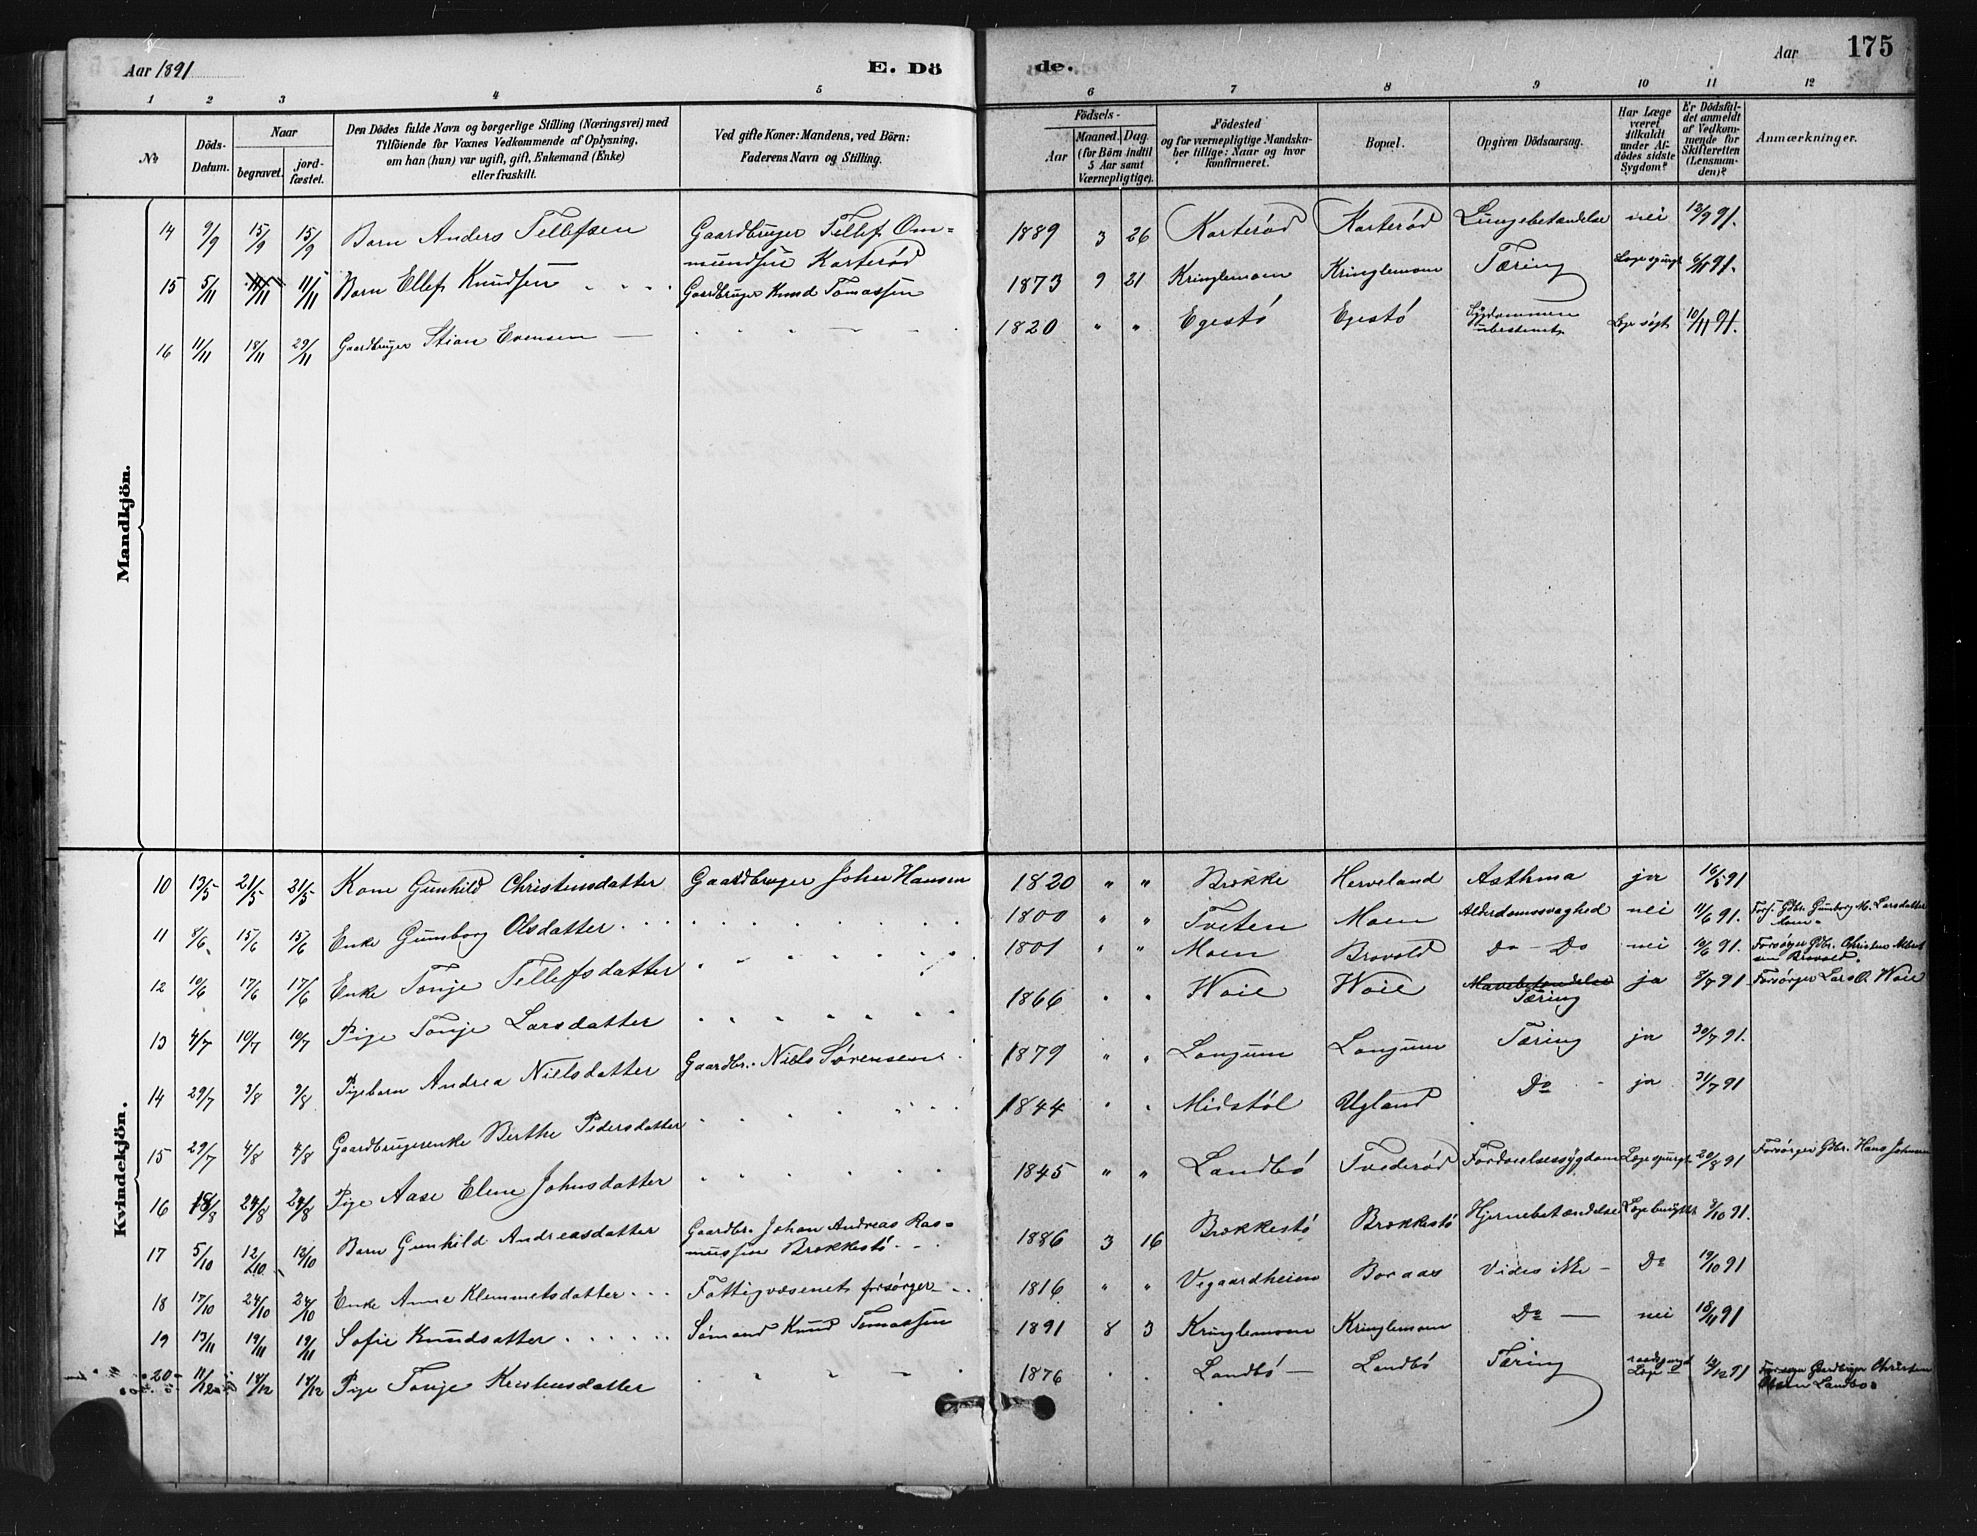 Aar 1891
E. Dö
de.
Aar
175
1 2 3 4 5 6 7 8 9 10 11 12
No
Döds-Datum.
Naar
begravet.
jord-fæstet.
Den Dödes fulde Navn og borgerlige Stilling (Næringsvei) med
Tilföiende for Voxnes Vedkommende af Oplysning,
om han (hun) var ugift, gift, Enkemand (Enke)
eller fraskilt.
Ved gifte Koner: Mandens, ved Börn:
Faderens Navn og Stilling.
Födsels-
Aar
Maaned. Dag.
(for Börn indtil
5 Aar samt
Værnepligtige).
Födested
og for værnepligtige Mandska-
ber tillige: Naar og hvor
konfirmeret.
Bopæl.
Opgiven Dödsaarsag.
Har Læge
været
tilkaldt
under Af-
dödes sidste
Sygdom?
Er Dödsfal-
det anmeldt
af Vedkom-
mende for
Skifteretten
(Lensman-
den)?
Anmærkninger.
Mandkjön.
14 9/9 15/9 15/9 Barn Anders Tellefsen Gaardbruger Tellef Om= 1889 3 26 Karterød Karterød Lungebetændelse nei 12/9 91.
mundsen Karterød
15 5/11 11/11 11/11 Barn Ellef Knudsen Gaardbruger Knud Tomassen 1873 9 21 Kringlemoen Kringlemoen Tæring Læge spurgt 6/11 91.
16 11/11 18/11 29/11 Gaardbruger Stian Evensen 1820 " " Egestø Egestø Sygdommen Læge søgt 10/11 91.
ubestemt
Kvindekjön.
10 13/5 21/5 21/5 Kone Gunhild Christensdatter Gaardbruger John Hansen 1820 " " Brække Herveland Asthma ja 16/5 91
11 8/6 15/6 15/6 Enke Gunborg Olsdatter 1800 " " Tveten Moen Alderdomssvaghed nei 11/6 91. Fors. Gdbr. Gunborg M. Larsdatter
Moen
12 10/6 17/6 17/6 Enke Tonje Tellefsdatter 1801 " " Moen Brovold Do - Do nei 12/6 91. Forsørger Gdbr. Christen Albert
sen Brovold.
13 4/7 10/7 10/7 Pige Tonje Larsdatter 1866 " " Woie Woie Mavebetændelse ja 8/7 91 Forsørger Lars O. Woie
Tæring
14 29/7 3/8 3/8 Pigebarn Andrea Nielsdatter Gaardbr. Niels Sørensen 1879 " " Langum Langum Tæring ja 30/7 91.
15 29/7 4/8 4/8 Gaardbrugerenke Berthe Pedersdatter 1844 " " Midstøl Ugland Do ja 31/7 91
16 18/8 24/8 24/8 Pige Aase Elene Johnsdatter 1845 " " Landbø Tvederød Fordøielsessygdom Læge spurgt 20/8 91 Forsørger Gdbr. Hans Johnsen
17 5/10 12/10 12/10 Barn Gunhild Andreasdatter Gaardbr. Johan Andreas Ras= 1886 3 16 Brækkestø Brækkestø Hjernebetændelse Læge benyttet 9/10 91.
mussen Brækkestø
18 17/10 24/10 24/10 Enke Anne Klemmetsdatter Fattigvæsenet forsørger 1816 " " Vegaardheien Boraas Vides ikke Do 19/10 91
19 13/11 19/11 19/11 Sofie Knudsatter Sømand Knud Tomassen 1891 8 3 Kringlemoen Kringlemoen Do nei 18/11 91
20 11/12 18/12 18/12 Pige Tonje Kristensdatter 1876 Landbø Landbø Tæring raadspurgt 14/12 91 Forsørger Gaardbruger Christen
Læge Olsen Landbø